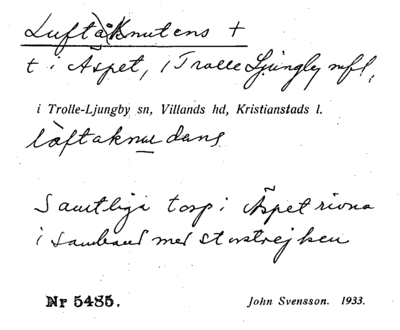 Luftåknutens +
t i Äspet, i Trolle Ljungby nfl,
i Trolle-Ljungby sn, Villands hd, Kristianstads l.
låftaknudans
Samtliga torp i Äspet rivna
i samband med storstrejken
Nr 5485. John Svensson. 1933.